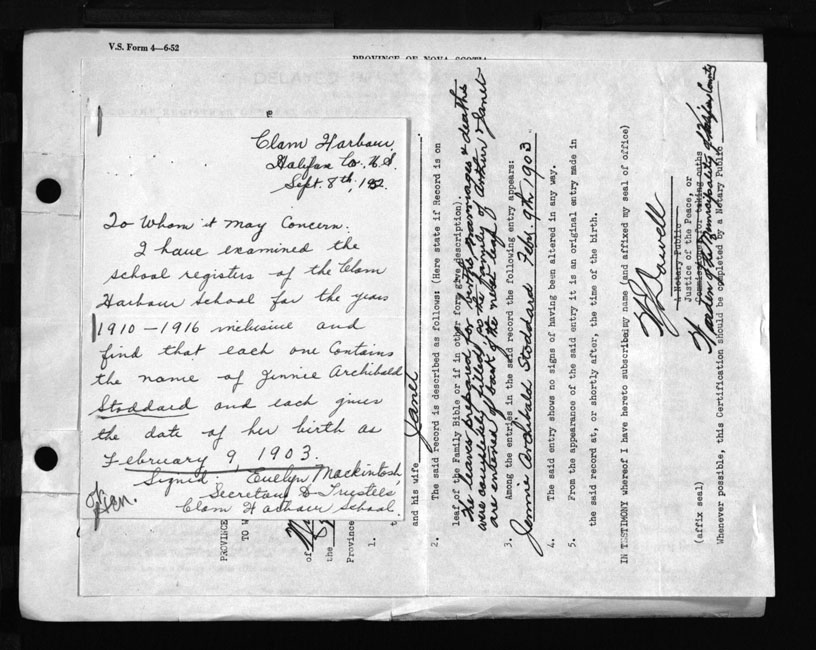 V.S. Form 4—6-52
PROVINCE OF NOVA SCOTIA
Clam Harbour,
Halifax Co. N.S.
Sept. 8th. 1952.
To Whom it May Concern:
I have examined the
school registers of the Clam
Harbour School for the years
1910 — 1916 inclusive and
find that each one contains
the name of Jennie Archibald
Stoddard and each gives
the date of her birth as
February 9, 1903.
Signed: Evelyn Mackintosh,
Secretary to Trustees,
Clam Harbour School.
PROVINCE
TO W
of
the
Province
1.
and his wife Janet
2. The said record is described as follows: (Here state if Record is on
leaf of the Family Bible or if in other form give description).
The leaves prepared for births marriages & deaths
were completely filled, so the family of Arthur & Janet
are entered at back of the next leaf
3. Among the entries in the said record the following entry appears:
Jennie Archibald Stoddard Feb. 9th, 1903
4. The said entry shows no signs of having been altered in any way.
5. From the appearance of the said entry it is an original entry made in
the said record at, or shortly after, the time of the birth.
IN TESTIMONY whereof I have hereto subscribed my name (and affixed my seal of office)
A Notary Public
Justice of the Peace, or
Commissioner for taking oaths
Warden of the Municipality of Halifax County
(affix seal)
Whenever possible, this Certification should be completed by a Notary Public